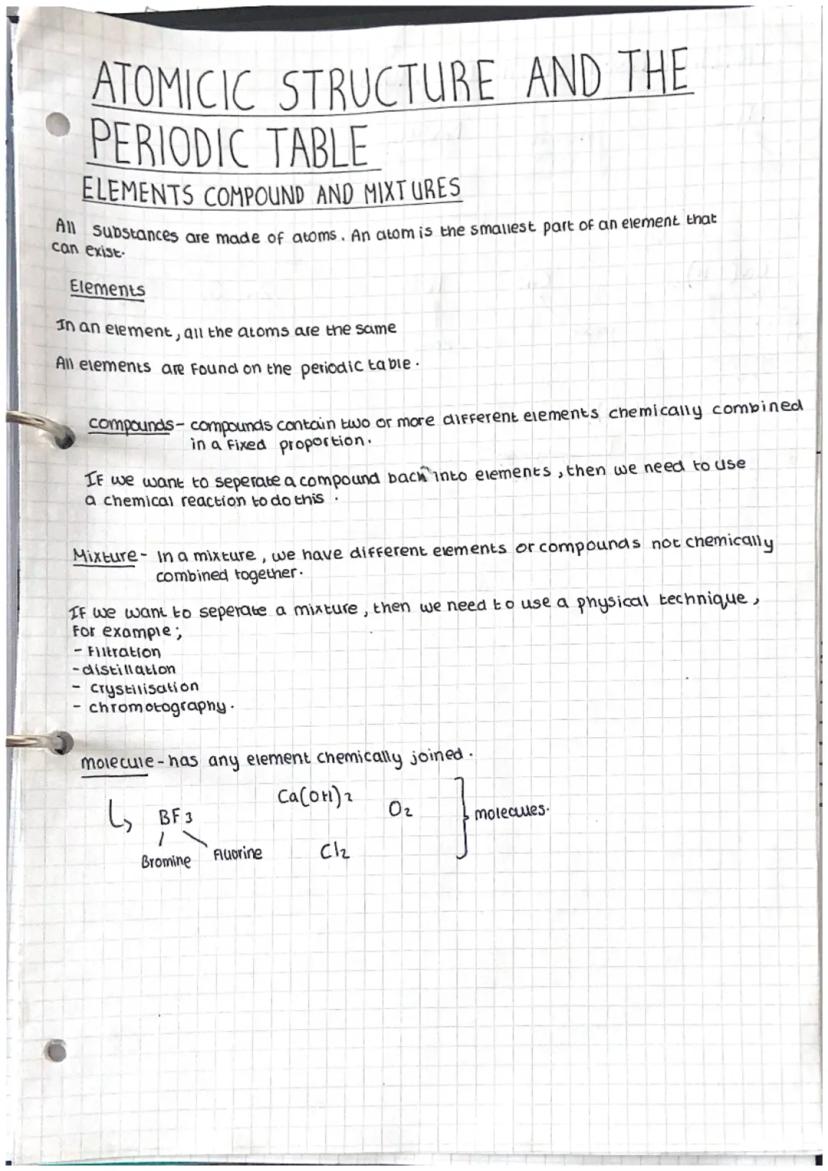 ATOMICIC STRUCTURE AND THE
PERIODIC TABLE
ELEMENTS COMPOUND AND MIXTURES
All substances are made of atoms. An atom is the smallest part of an element that
can exist.
Elements
In an element, all the atoms are the same
All elements are found on the periodic table.
compounds - compounds contain two or more different elements chemically combined
in a fixed proportion.
If we want to seperate a compound back into elements, then we need to use
a chemical reaction to do this.
Mixture - In a mixture, we have different elements or compounds not chemically
combined together.
If we want to seperate a mixture, then we need to use a physical technique,
for example;
- Filtration
- distillation
- crystilisation
- chromotography.
molecule - has any element chemically joined.
↳ BF3 Ca(OH)2 O2 ] molecules.
Bromine Fluorine Cl2